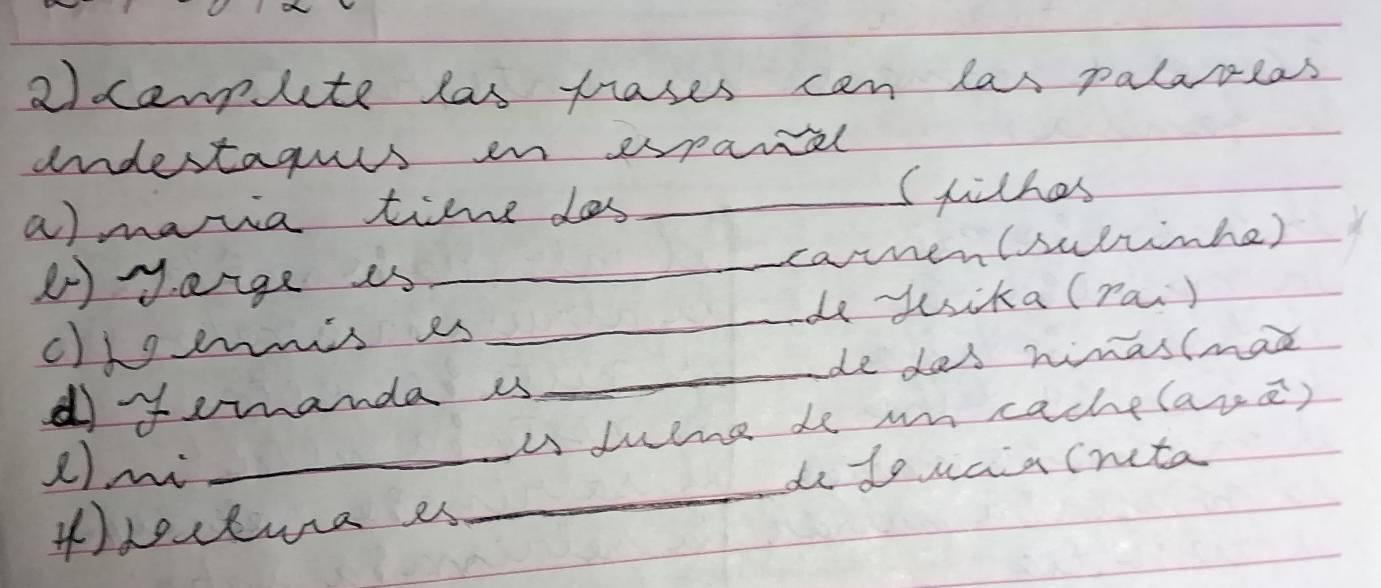 2) complete las frases con las palavras
endestaques en español
a) maria tiene dos ________ (filhos
b) Jorge es ________ carmen (subrinho)
c) Dennis es ________ de Jesika (pai)
d) Fernanda es ________ de dos niñas (mãe
e) mi ________ es dueno de un coche (avô)
f) es ________ de (neta